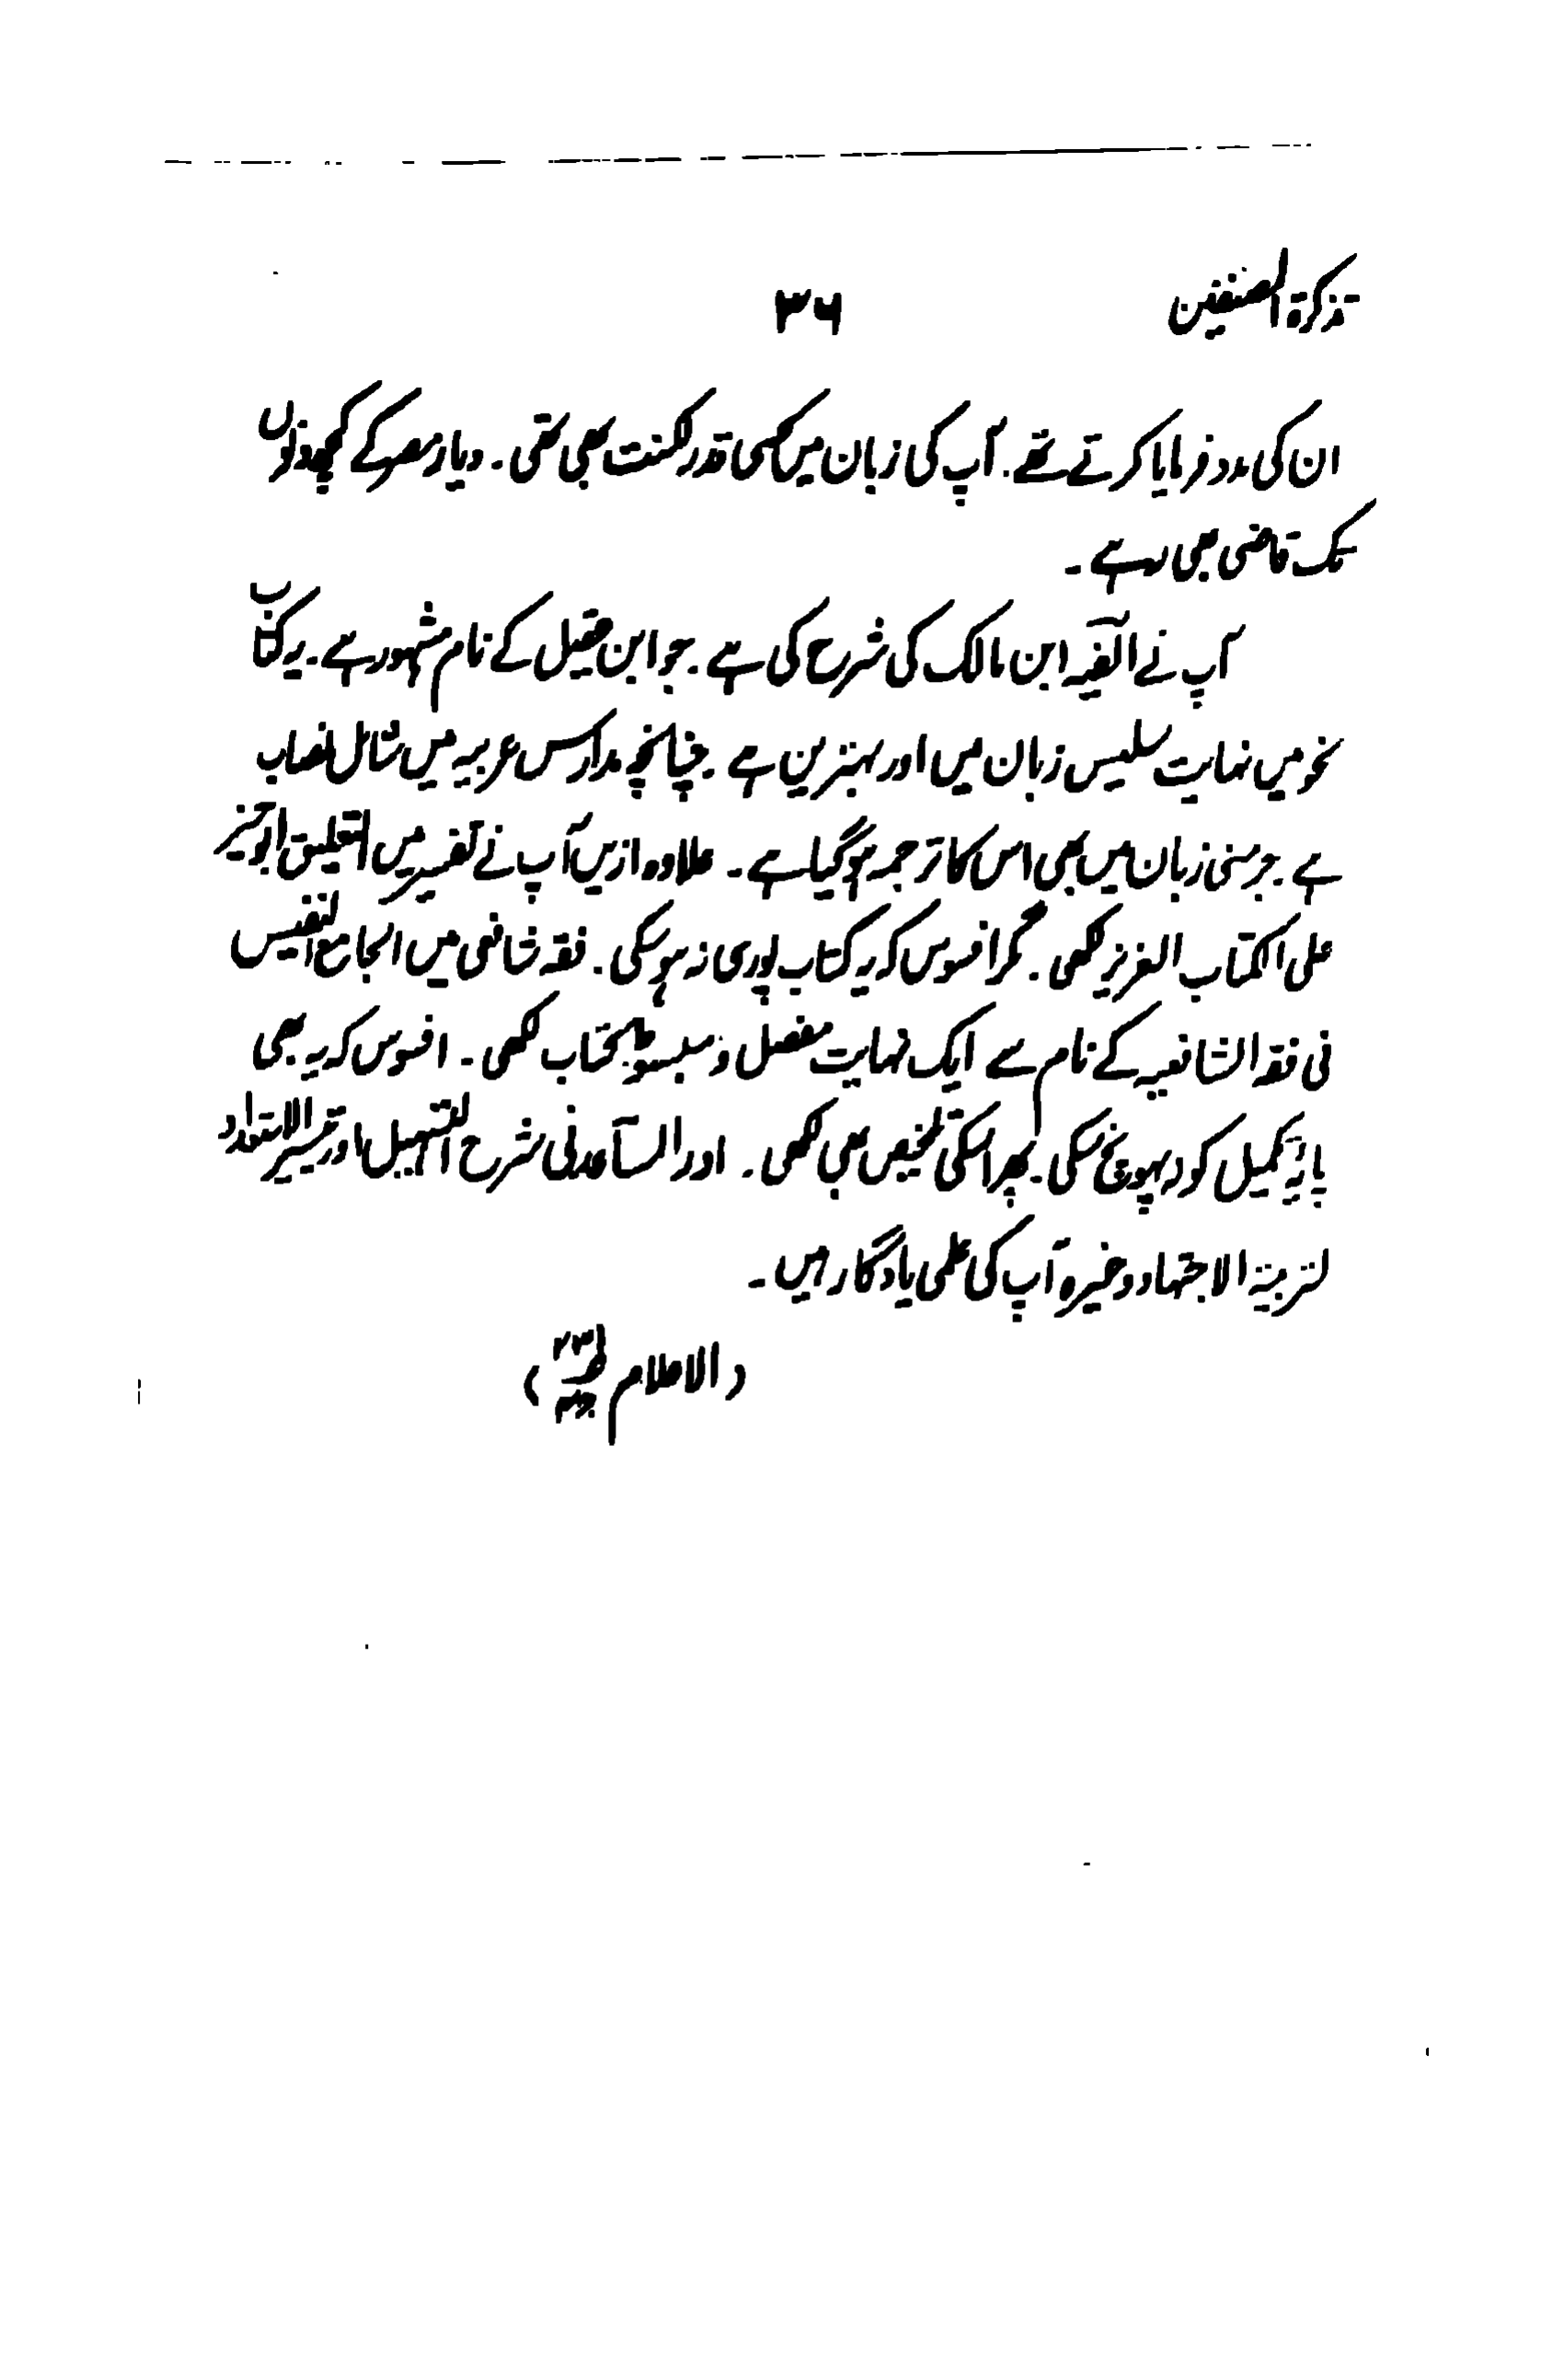 تذکرۃ المصنفین ۳۶
ان کی مدد فرمایا کرتے تھے. آپ کی زبان میں کسی قدر لکنت بھی تھی. دیار مصر کے کچھ دنوں
تک قاضی بھی رہے.
آپ نے الفیہ ابن مالک کی شرح کی ہے. جو ابن عقیل کے نام مشہور ہے. یہ کتاب
نحو میں نہایت سلیس زبان میں اور بہترین ہے. چنانچہ مدارس عربیہ میں شامل نصاب
ہے. جرمنی زبان میں بھی اس کا ترجمہ ہو گیا ہے. علاوہ ازیں آپ نے تفسیر میں التعلیق الوجیز
علی الکتاب العزیز لکھی. مگر افسوس کہ یہ کتاب پوری نہ ہو سکی. فقہ شافعی میں الجامع النفیس
فی فقہ الشافعیہ کے نام سے ایک نہایت مفصل و مبسوط کتاب لکھی. افسوس کہ یہ بھی
پایۂ تکمیل کو نہ پہونچ سکی. پھر اسکی تلخیص بھی لکھی. اور المساعد فی شرح التسہیل اور تیسیر الاستعداد
لتربیۃ الاجتہاد وغیرہ آپ کی علمی یادگار ہیں.
(الاعلام)